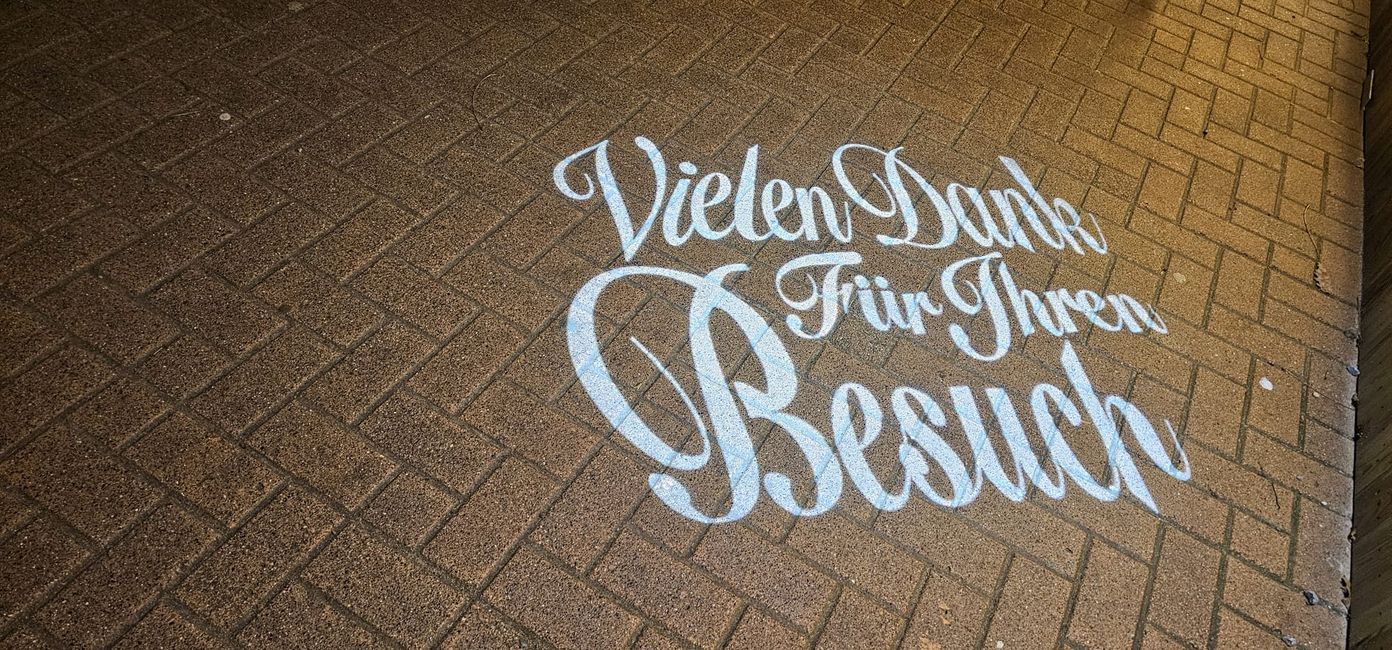 Vielen Dank
Für Ihren
Besuch